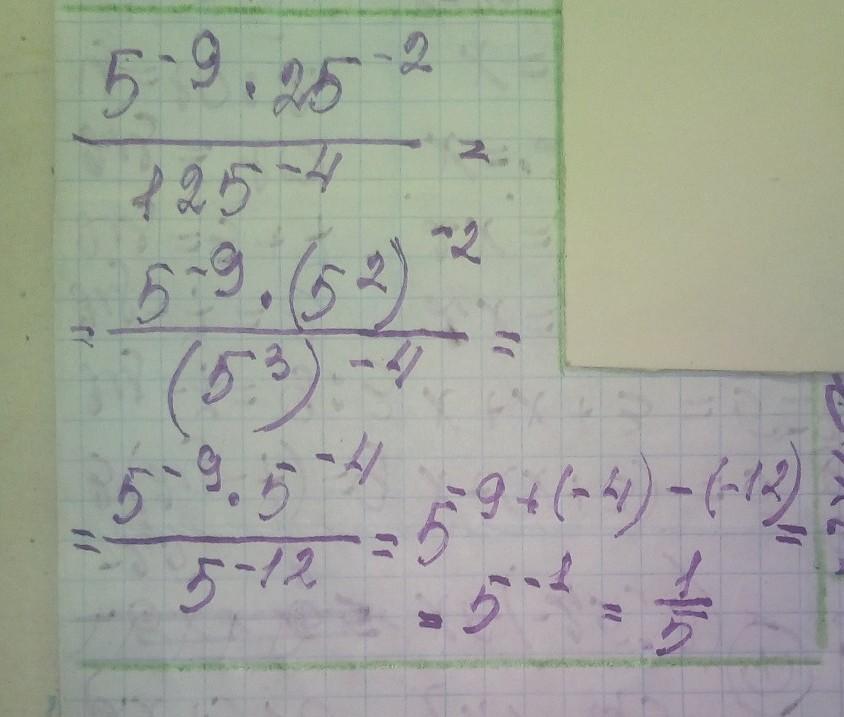 5⁻⁹ · 25⁻² / 125⁻⁴ =
= 5⁻⁹ · (5²)⁻² / (5³)⁻⁴ =
= 5⁻⁹ · 5⁻⁴ / 5⁻¹² = 5⁻⁹⁺⁽⁻⁴⁾⁻⁽⁻¹²⁾ =
= 5⁻¹ = 1/5